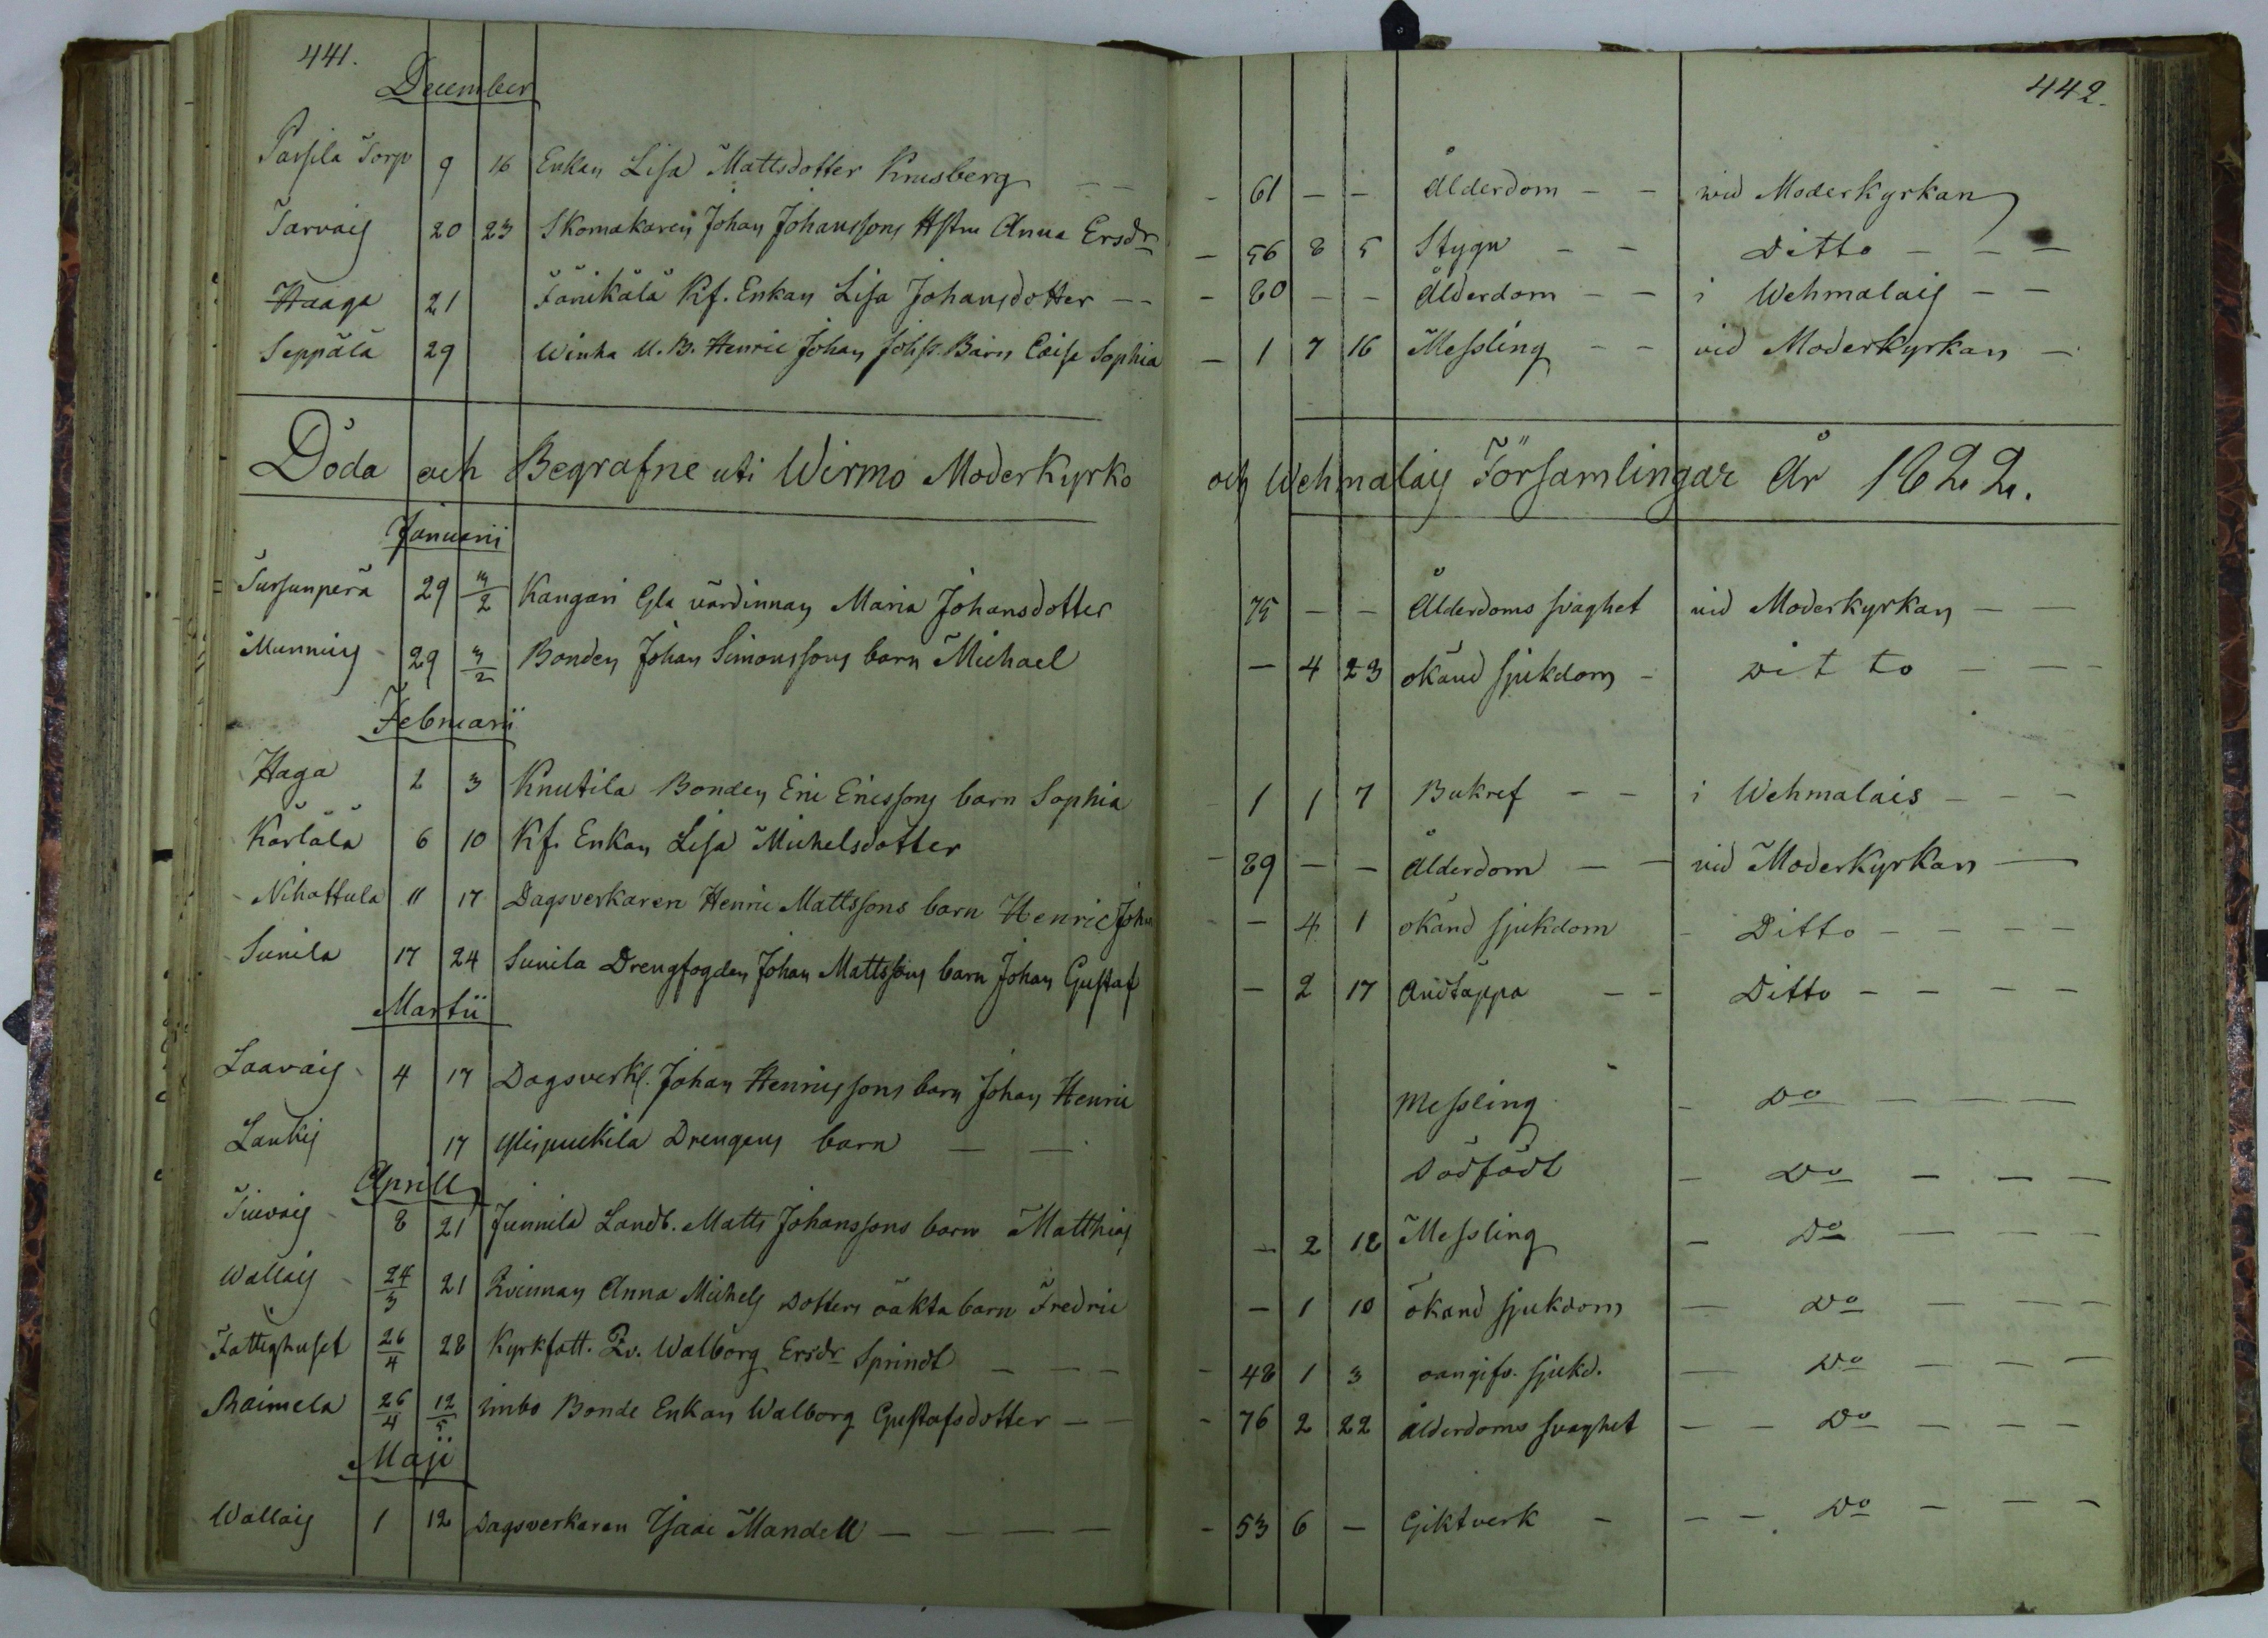 441.
442.
December
Parsila Torp 9 16 Enkan Lisa Mattsdotter Krusberg - - - 61 - - Ålderdom - - wid Moderkyrkan
Tarvais 20 23 Skomakaren Johan Johanssons Hstru Anna Ersdr - 56 8 5 Stygn - - Ditto - - -
Haaga 21 Fänikälä Kf. Enkan Lisa Johansdotter - - - 80 - - Ålderdom - - i Wehmalais - -
Seppälä 29 Winha U.B. Henric Johan Johss. Barn Caisa Sophia - 1 7 16 Messling - - vid Moderkyrkan -
Döda och Begrafne uti Wirmo Moderkyrko och Wehmalais Församlingar År 1822.
Januarii
Sursunperä 29 3/2 Kangari Gla värdinnan Maria Johansdotter 75 - - Ålderdoms svaghet vid Moderkyrkan - -
Munnuis 29 3/2 Bonden Johan Simonssons barn Michael - 4 23 okänd sjukdom - Ditto - - -
Februarii
Haga 2 3 Knutila Bonden Eric Ericssons barn Sophia - 1 1 7 Bukref - - i Wehmalais - - -
Karlälä 6 10 Kf. Enkan Lisa Michelsdotter - 89 - - Ålderdom - - vid Moderkyrkan -
Nihattula 11 17 Dagsverkaren Henric Mattssons barn Henric Joh - - 4 1 okänd sjukdom - Ditto - - - -
Sunila 17 24 Sunila Drengfogden Johan Mattssons barn Johan Gustaf - 2 17 Andtäppa - - Ditto - - - -
Martii
Laavais 4 17 Dagsverk. Johan Henricssons barn Johan Henric Messling - Do - - -
Laukis 17 Drengens barn - - Dödfödt - Do - - -
Aprill
Tiuvais 8 21 Junnila Landb. Matts Johanssons barn Matthias - 2 18 Messling - Do - - -
Wallais 24/3 21 Qvinnan Anna Michels Dotters oäkta barn Fredric - 1 10 okänd sjukdom - Do - - -
Fattighuset 26/4 28 Kyrkfatt. Qv. Walborg Ersdr Sprindt - - - - 48 1 3 oangifv. sjukd. - Do - - -
Raimela 26/4 12/5 Simbo Bonde Enkan Walborg Gustafsdotter - - - 76 2 22 Ålderdoms svaghet - - Do - - -
Maji
Wallais 1 12 Dagsverkaren Isaac Mandell - - - - - 53 6 - Giktverk - - - Do - - -